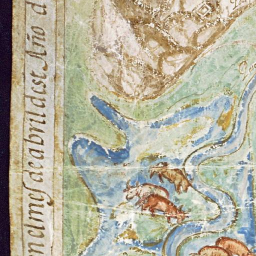 en el mes de abril dest Año d